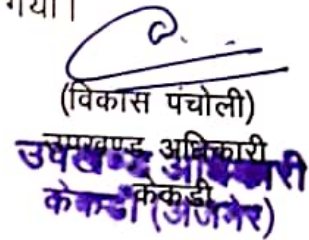 गया।
(विकास पंचोली)
उपखण्ड अधिकारी
उपखण्ड अधिकारी
केकडी
केकडी (अजमेर)